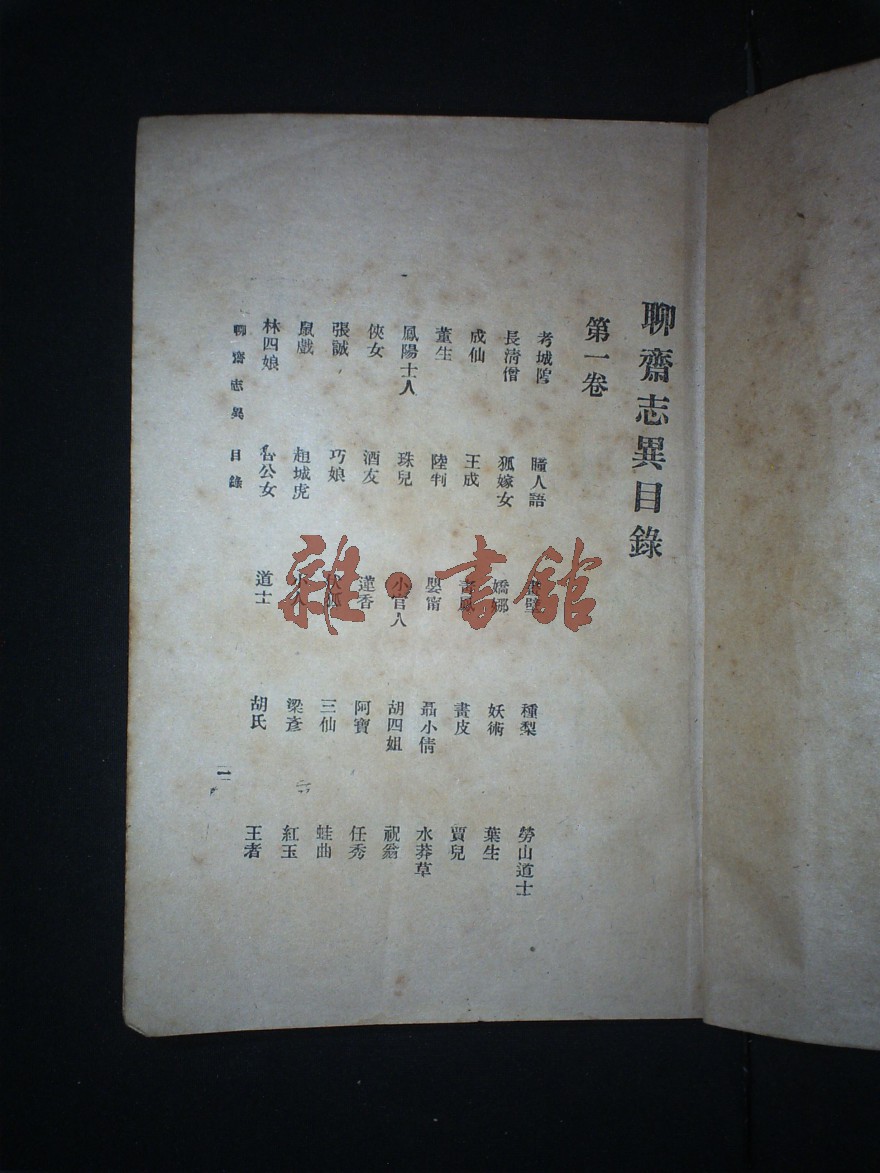 聊齋志異目錄
第一卷
考城隍 瞳人語 畫壁 種梨 勞山道士
長清僧 狐嫁女 嬌娜 妖術 葉生
成仙 王成 青鳳 畫皮 賈兒
董生 陸判 嬰甯 聶小倩 水莽草
鳳陽士人 珠兒 小官人 胡四姐 祝翁
俠女 酒友 蓮香 阿寶 任秀
張誠 巧娘 伏狐 三仙 蛙曲
鼠戲 趙城虎 小人 梁彥 紅玉
林四娘 魯公女 道士 胡氏 王者
聊齋志異 目錄 一
雜·書館